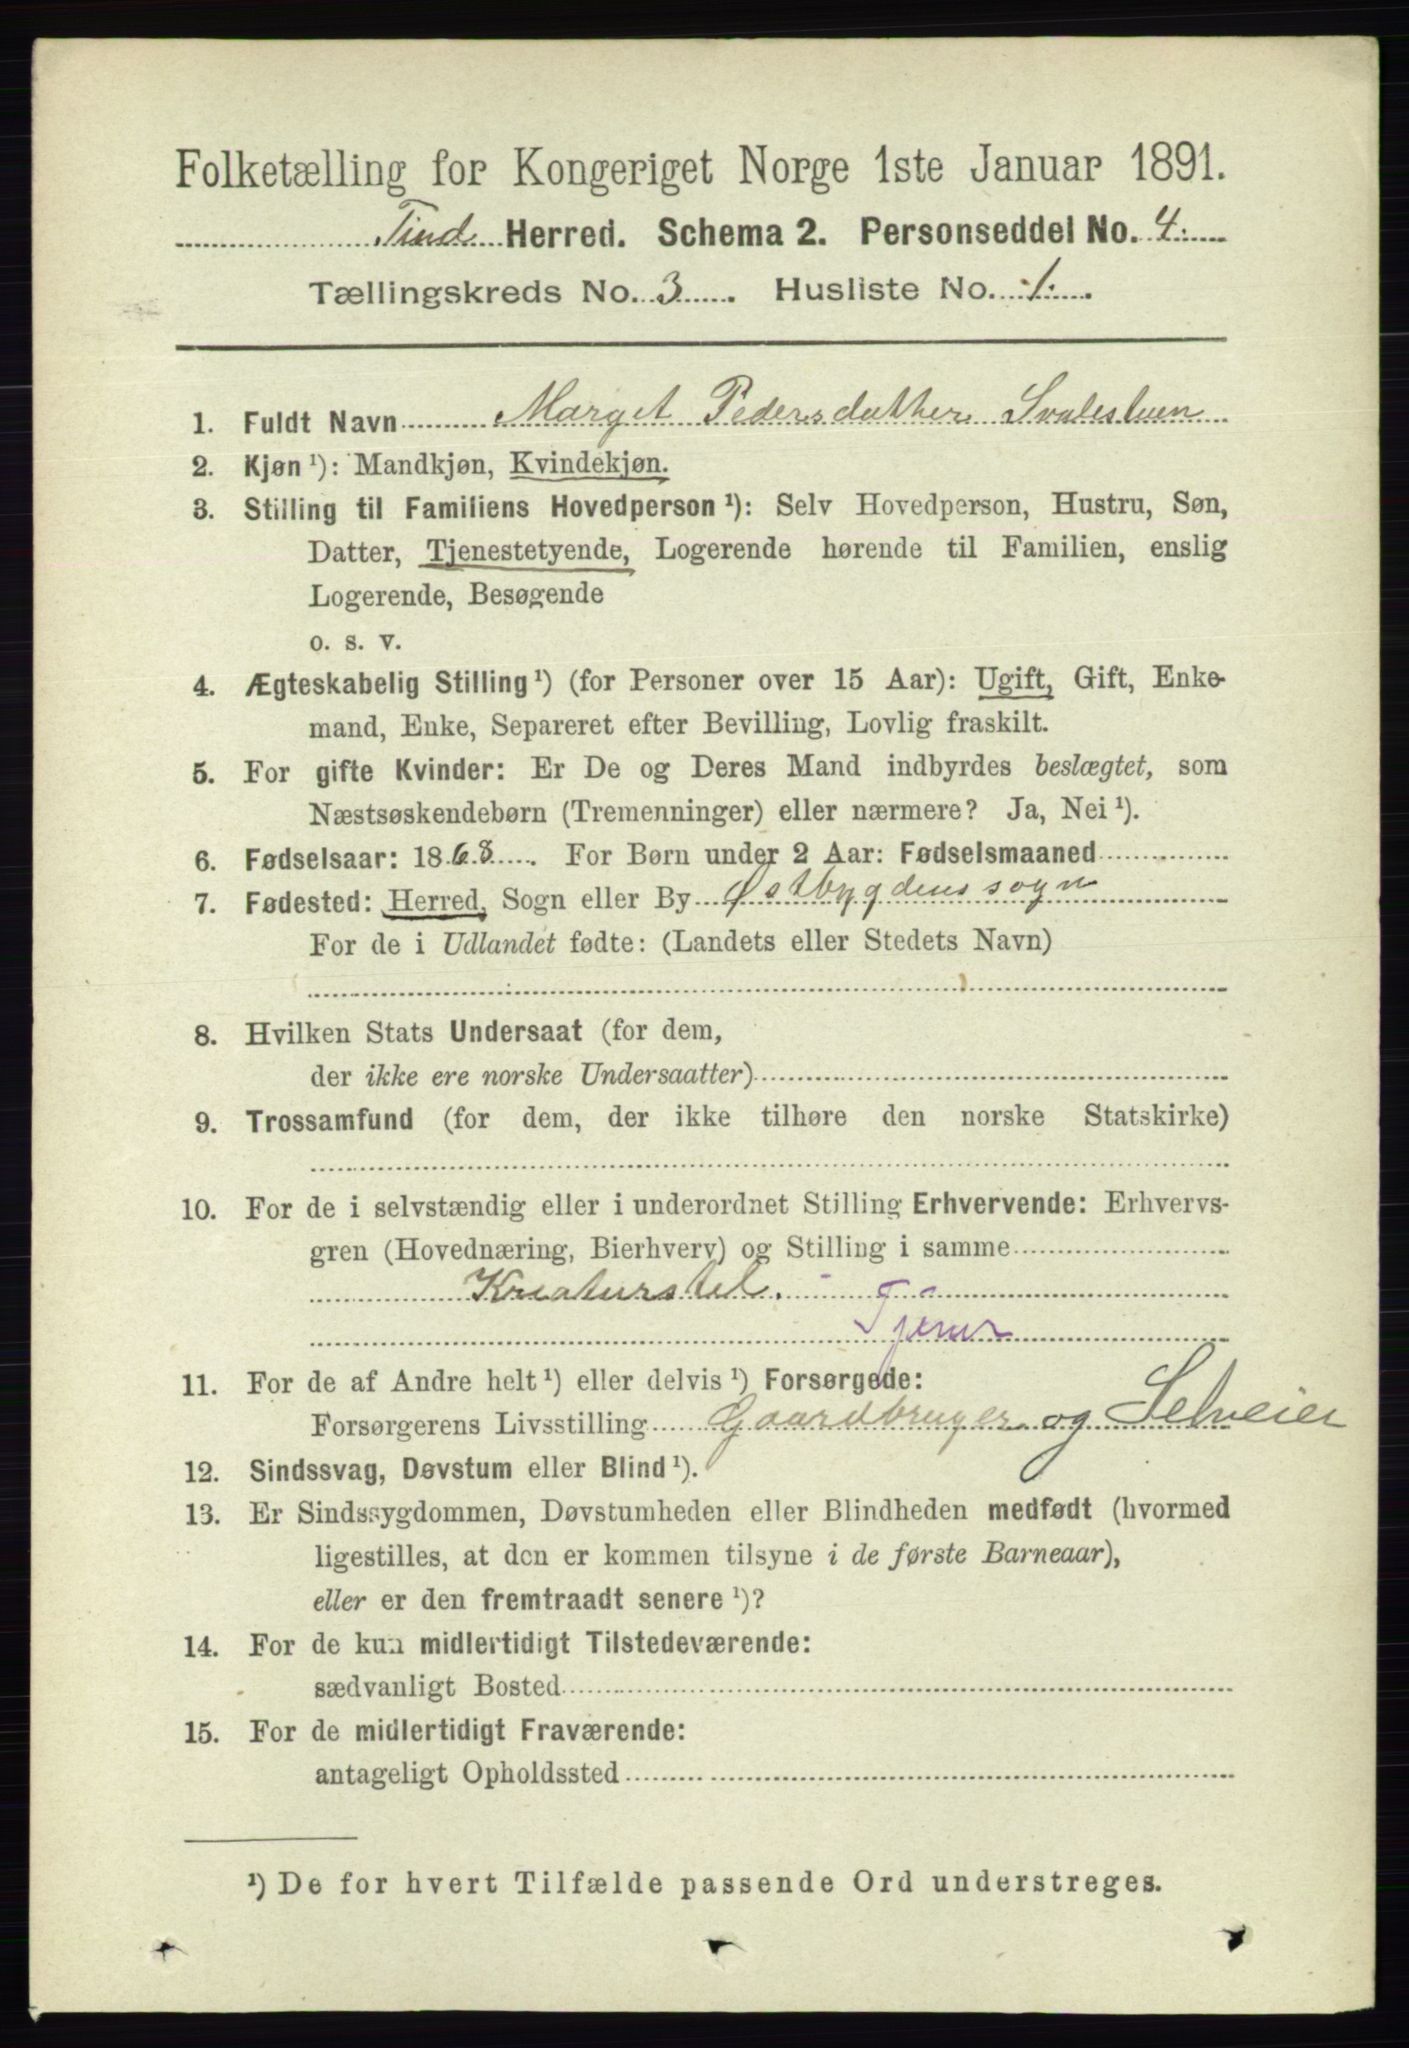 Folketælling for Kongeriget Norge 1ste Januar 1891.
Tind Herred. Schema 2. Personseddel No. 4.
Tællingskreds No. 3. Husliste No. 1.
1. Fuldt Navn Marget Pedersdatther Svalestuen
2. Kjøn ¹): Mandkjøn, Kvindekjøn.
3. Stilling til Familiens Hovedperson ¹): Selv Hovedperson, Hustru, Søn,
Datter, Tjenestetyende, Logerende hørende til Familien, enslig
Logerende, Besøgende
o. s. v.
4. Ægteskabelig Stilling ¹) (for Personer over 15 Aar): Ugift, Gift, Enke-
mand, Enke, Separeret efter Bevilling, Lovlig fraskilt.
5. For gifte Kvinder: Er De og Deres Mand indbyrdes beslægtet, som
Næstsøskendebørn (Tremenninger) eller nærmere? Ja, Nei ¹).
6. Fødselsaar: 1868. For Børn under 2 Aar: Fødselsmaaned
7. Fødested: Herred, Sogn eller By Østbygdens sogn
For de i Udlandet fødte: (Landets eller Stedets Navn)
8. Hvilken Stats Undersaat (for dem,
der ikke ere norske Undersaatter)
9. Trossamfund (for dem, der ikke tilhøre den norske Statskirke)
10. For de i selvstændig eller i underordnet Stilling Erhvervende: Erhvervs-
gren (Hovednæring, Bierhverv) og Stilling i samme
Kreaturstel.
Tjener
11. For de af Andre helt ¹) eller delvis ¹) Forsørgede:
Forsørgerens Livsstilling Gaardbruger og Selveier
12. Sindssvag, Døvstum eller Blind ¹).
13. Er Sindssygdommen, Døvstumheden eller Blindheden medfødt (hvormed
ligestilles, at den er kommen tilsyne i de første Barneaar),
eller er den fremtraadt senere ¹)?
14. For de kun midlertidigt Tilstedeværende:
sædvanligt Bosted
15. For de midlertidigt Fraværende:
antageligt Opholdssted
¹) De for hvert Tilfælde passende Ord understreges.